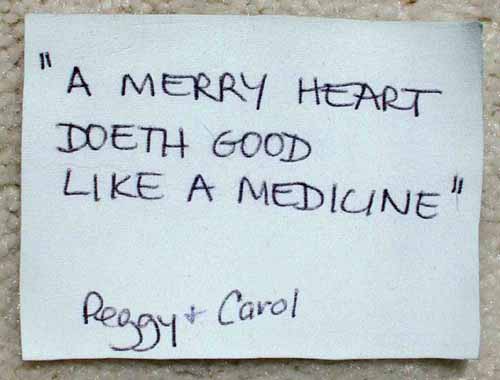 "A MERRY HEART
DOETH GOOD
LIKE A MEDICINE"
Peggy + Carol